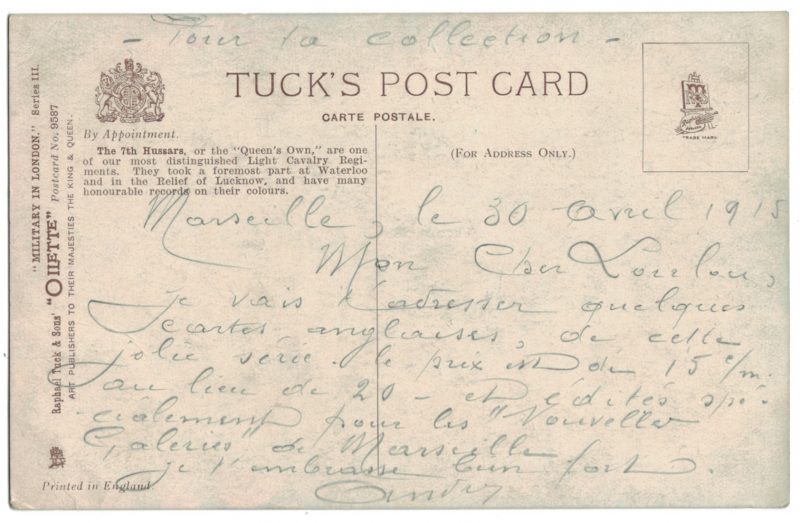 - Pour ta collection -
TUCK'S POST CARD
CARTE POSTALE.
By Appointment.
(FOR ADDRESS ONLY.)
TRADE MARK
The 7th Hussars, or the "Queen's Own," are one
of our most distinguished Light Cavalry Regi-
ments. They took a foremost part at Waterloo
and in the Relief of Lucknow, and have many
honourable records on their colours.
"MILITARY IN LONDON." Series III.
Raphael Tuck & Sons' "OILETTE" Postcard No. 9587
ART PUBLISHERS TO THEIR MAJESTIES THE KING & QUEEN.
Marseille, le 30 avril 1915
Mon Cher Loulou,
je vais t'adresser quelques
cartes anglaises, de cette
jolie série. le prix est de 15 c/m.
au lieu de 20 - et édités spé-
cialement pour les "Nouvelles
Galeries" de Marseille
je t'embrasse bien fort.
André
Printed in England.